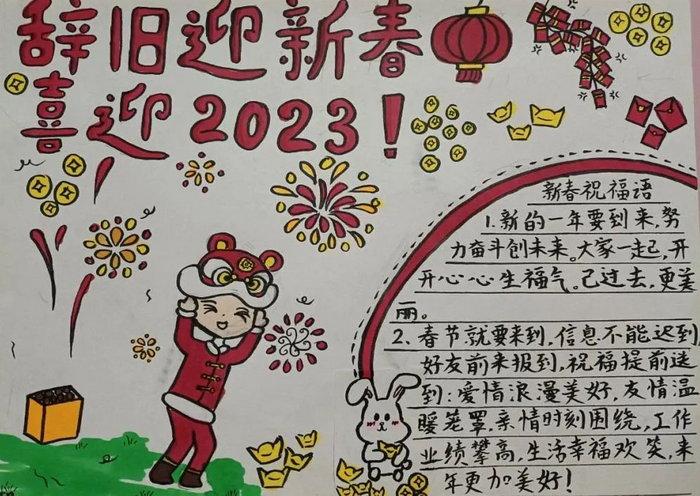 辞旧迎新春
喜迎2023!
新春祝福语
1.新的一年要到来,努
力奋斗创未来。大家一起,开
开心心生福气。己过去,更美
丽。
2、春节就要来到,信息不能迟到,
好友前来报到,祝福提前送
到:爱情浪漫美好,友情温
暖笼罩,亲情时刻围绕,工作
业绩攀高,生活幸福欢笑,来
年更加美好!